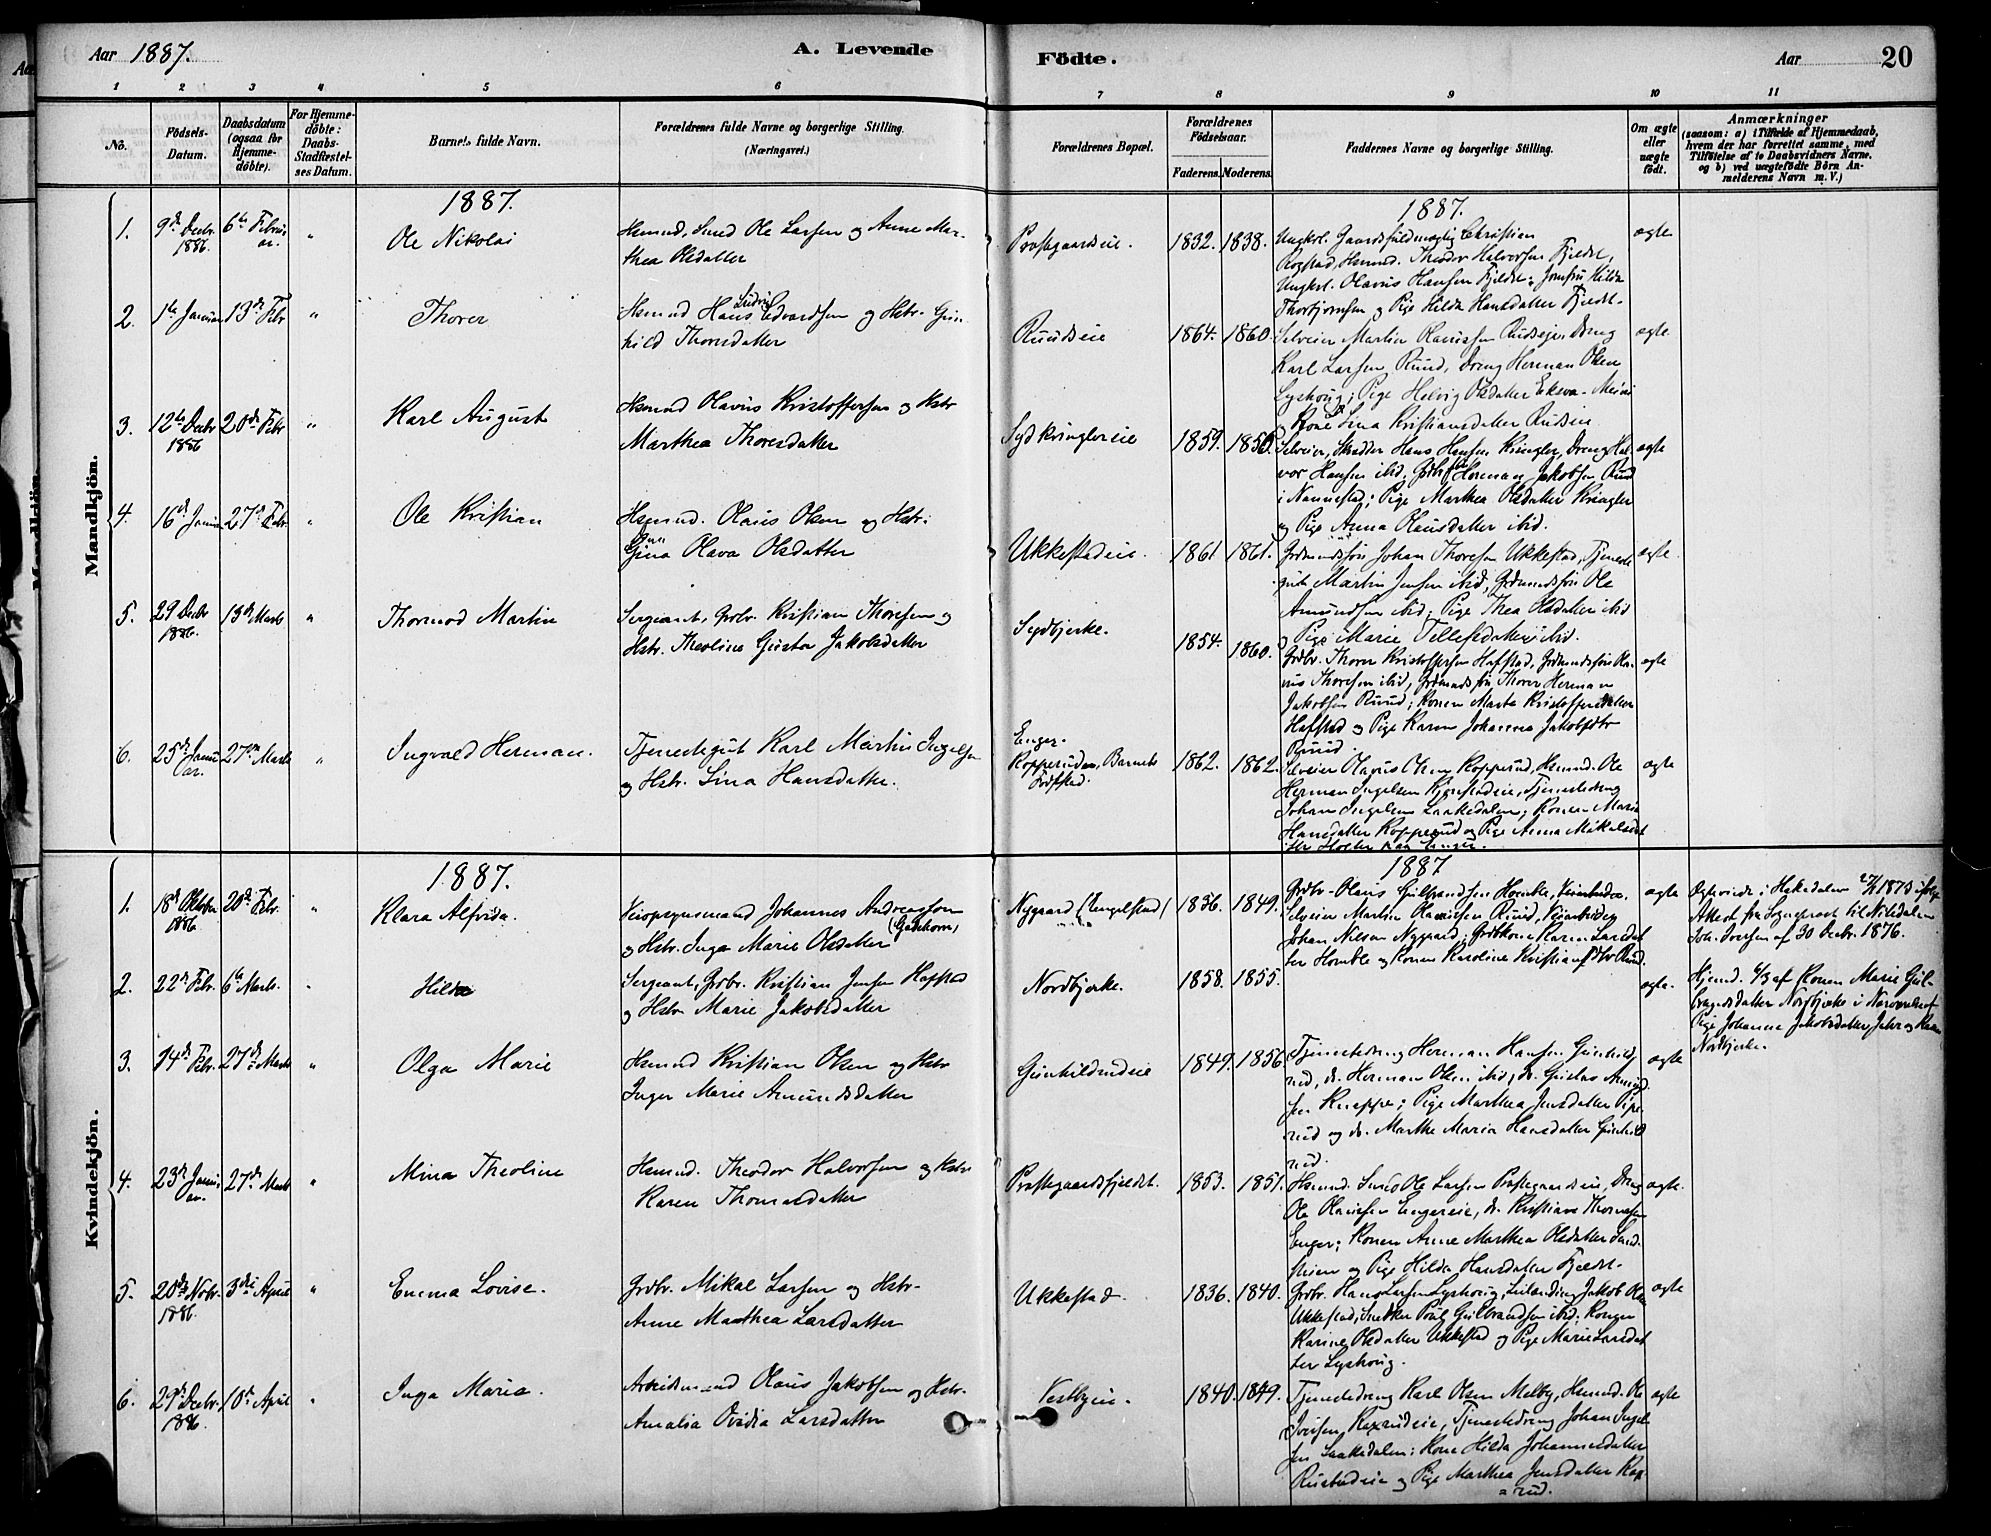 Aar 1887. A. Levende Födte. Aar 20
1 2 3 4 5 6 7 8 9 10 11
No.
Födsels-Datum.
Daabsdatum (ogsaa for Hjemmedöbte).
For Hjemmedöbte: Daabs-Stadfæstelses Datum.
Barnets fulde Navn.
Forældrenes fulde Navne og borgerlige Stilling.
(Næringsvei.)
Forældrenes Bopæl.
Forældrenes Födselsaar.
Faderens. Moderens.
Faddernes Navne og borgerlige Stilling.
Om ægte eller uægte födt.
Anmærkninger
(saasom: a) i Tilfælde af Hjemmedaab,
hvem der har forrettet samme, med
Tilföielse af to Daabsvidners Navne.
og b) ved uægtefödte Börn Anmelderens Navn m. V.)
Mandkjön.
1887. 1887.
1. 9de Decbr. 1886. 6te Februar. " Ole Nikolai
Hsmnd, Smed Ole Larsen og Anne Marthea Olsdatter
Præstegaardseie. 1832. 1838.
Ungkrl. Gaardsfuldmægtig Christian
Rogstad, Hsmnd. Theodor Halvorsen Fjeldst,
Ungkrl. Olavus Hansen Fjeldst; Jomfru Hilda
Thorbjørnsen og Pige Hilda Hansdatter Fjeldst.
ægte
2. 1te Januar 13de Febr " Thorer
Hsmnd Hans Ludvig Edvardsen og Hstr. Gunhild Thorsdatter
Ruudseie 1864. 1860.
Selveier Martin Olaussen Rudseje, Dreng
Karl Larsen Ruud, Dreng Herman Olsen
Lyshoug; Pige Helvig Olsdatter
Kone Lina Kristiansdatter Rudseie
ægte
3. 12te Decbr 1886 20de Febr " Karl August
Hsmnd Olavus Kristoffersen og Hstr
Marthea Thoresdatter
Sydkringlereie 1859. 1856.
Selveier, Skrædder Hans Hansen Kringler, Dreng Halvor Hansen ibid, Herman Jakobsen Ruud
i Nannestad; Pige Marthea Olsdatter Kringler
og Pige Anna Olausdatter ibid.
ægte
4. 16de Januar 27de Febr. " Ole Kristian
Hsmnd. Olaus Olsen og Hstr:
Gina Olava Olsdatter
Ukkestadeie. 1861 1861.
Grdmandssøn Johan Thoresen Ukkestad, Tjenestegut Martin Jensen ibid, Grdmandssøn Ole
Amundsen ibid; Pige Thea Olsdatter ibid
og Pige Marie Tellefsdatter ibid.
ægte
5. 29 Decbr 1886. 13de Marts " Thormod Martin
Sergeant, Grdbr. Kristian Thoresen og
Hstr. Theoline Gusta Jakobsdatter
Sydbjerke. 1854. 1860.
Grdbr. Thorer Kristoffersen Hafstad, Grdmandssøn
Thoresen ibid, Grdmandssøn Thorer Herman
Jakobsen Ruud; Konen Marte Kristoffersdatter
Hafstad og Pige Karen Johanna Jakobsdtr
Ruud.
ægte
6. 25de Januar. 27de Marts " Ingvald Herman.
Tjenestegut Karl Martin Ingelsen
og Hstr. Lina Hansdatter.
Enger.
Kopperuden, Barnets
Fødested.
1862. 1862.
Selveier Olavus Olsen Kopperud, Hsmnd. Ole
Herman Ingelsen, Tjenestedreng
Johan Ingelsen Laakedalen; Konen Maria
Hansdatter Kopperud og Pige Anna Mikalsdatter Holter paa Enger.
ægte
Kvindekjön.
1887. 1887
1. 18de Oktober 1886. 20de Febr. " Klara Alfrida.
Veiopsynsmand Johannes Andreassen
(Gashorn)
og Hstr. Inga Marie Olsdatter
Nygaard (Engelstad) 1836. 1849.
Grdbr. Olaus Gulbrandsen Homble, Veiarbeider.
Selveier Martin Olaussen Ruud, Veiarbeider
Johan Nilsen Nygaard; Grdbkone Karen Larsdatter Homble og Konen Karoline Kristiansdtr Ruud.
ægte
Ægteviede i Hakadalen 1873 ifølge
Attest fra Sognepræst til Nitedalen
af 30 Decbr. 1876.
2. 22de Febr. 6te Marts. " Hilda
Sergeant, Grdbr. Kristian Jensen Hafstad
og Hstr Marie Jakobsdatter
Nordbjerke. 1858. 1855.
ægte.
Hjemd. 6/3 af Konen Marie Gulbrandsdatter Nordbjerke i Nærværelse af
Pige Johanna Jakobsdatter
Nordbjerke.
3. 14de Febr. 27de Marts " Olga Marie
Hsmnd Kristian Olsen og Hstr
Inger Marie Amundsdatter
Gunhildrudeie 1849. 1856.
Tjenestedreng Herman Hansen Gunhildrud, do. Herman Olsen ibid, do. Gustav Amundsen Knappe; Pige Marthea Jensdatter Piperud og do. Marthe Maria Hansdatter Gunhildrud.
ægte
4. 23de Januar. 27de Marts " Mina Theoline
Hsmnd. Theodor Halvorsen og Hstr
Karen Thomasdatter
Præstegaardsfjeldst. 1853. 1851.
Hsmnd. Smed Ole Larsen Præstegaardseie, Dreng
Ole Olaussen Engereie, do. Kristian Thomasen
Enger; Konen Anne Marthea Olsdatter
og Pige Hilda Hansdatter Fjeldst.
ægte.
5. 20de Novbr. 1886. 3die April " Emma Lovise.
Grdbr. Mikal Larsen og Hstr.
Anne Marthea Larsdatter
Ukkestad. 1836. 1840.
Grdbr. Hans Larsen Lyshoug, Leilænding Jakob
Ukkestad, Snedker Gulbrandsen ibid; Konen
Karine Olsdatter Ukkestad og Pige Marie Larsdatter Lyshoug.
ægte
6. 29de Decbr. 1886. 10de April " Inga Maria.
Arbeidsmand Olaus Jakobsen og Hstr.
Amalia Ovidia Larsdatter
Vestbyeie. 1840. 1849.
Tjenestedreng Karl Olsen Melby, Hsmnd. Ole
Iversen, Tjenestedreng Johan Ingelsen Laakedalen; Kone Hilda Johannesdatter
og Pige Marthea Jensdatter
ægte